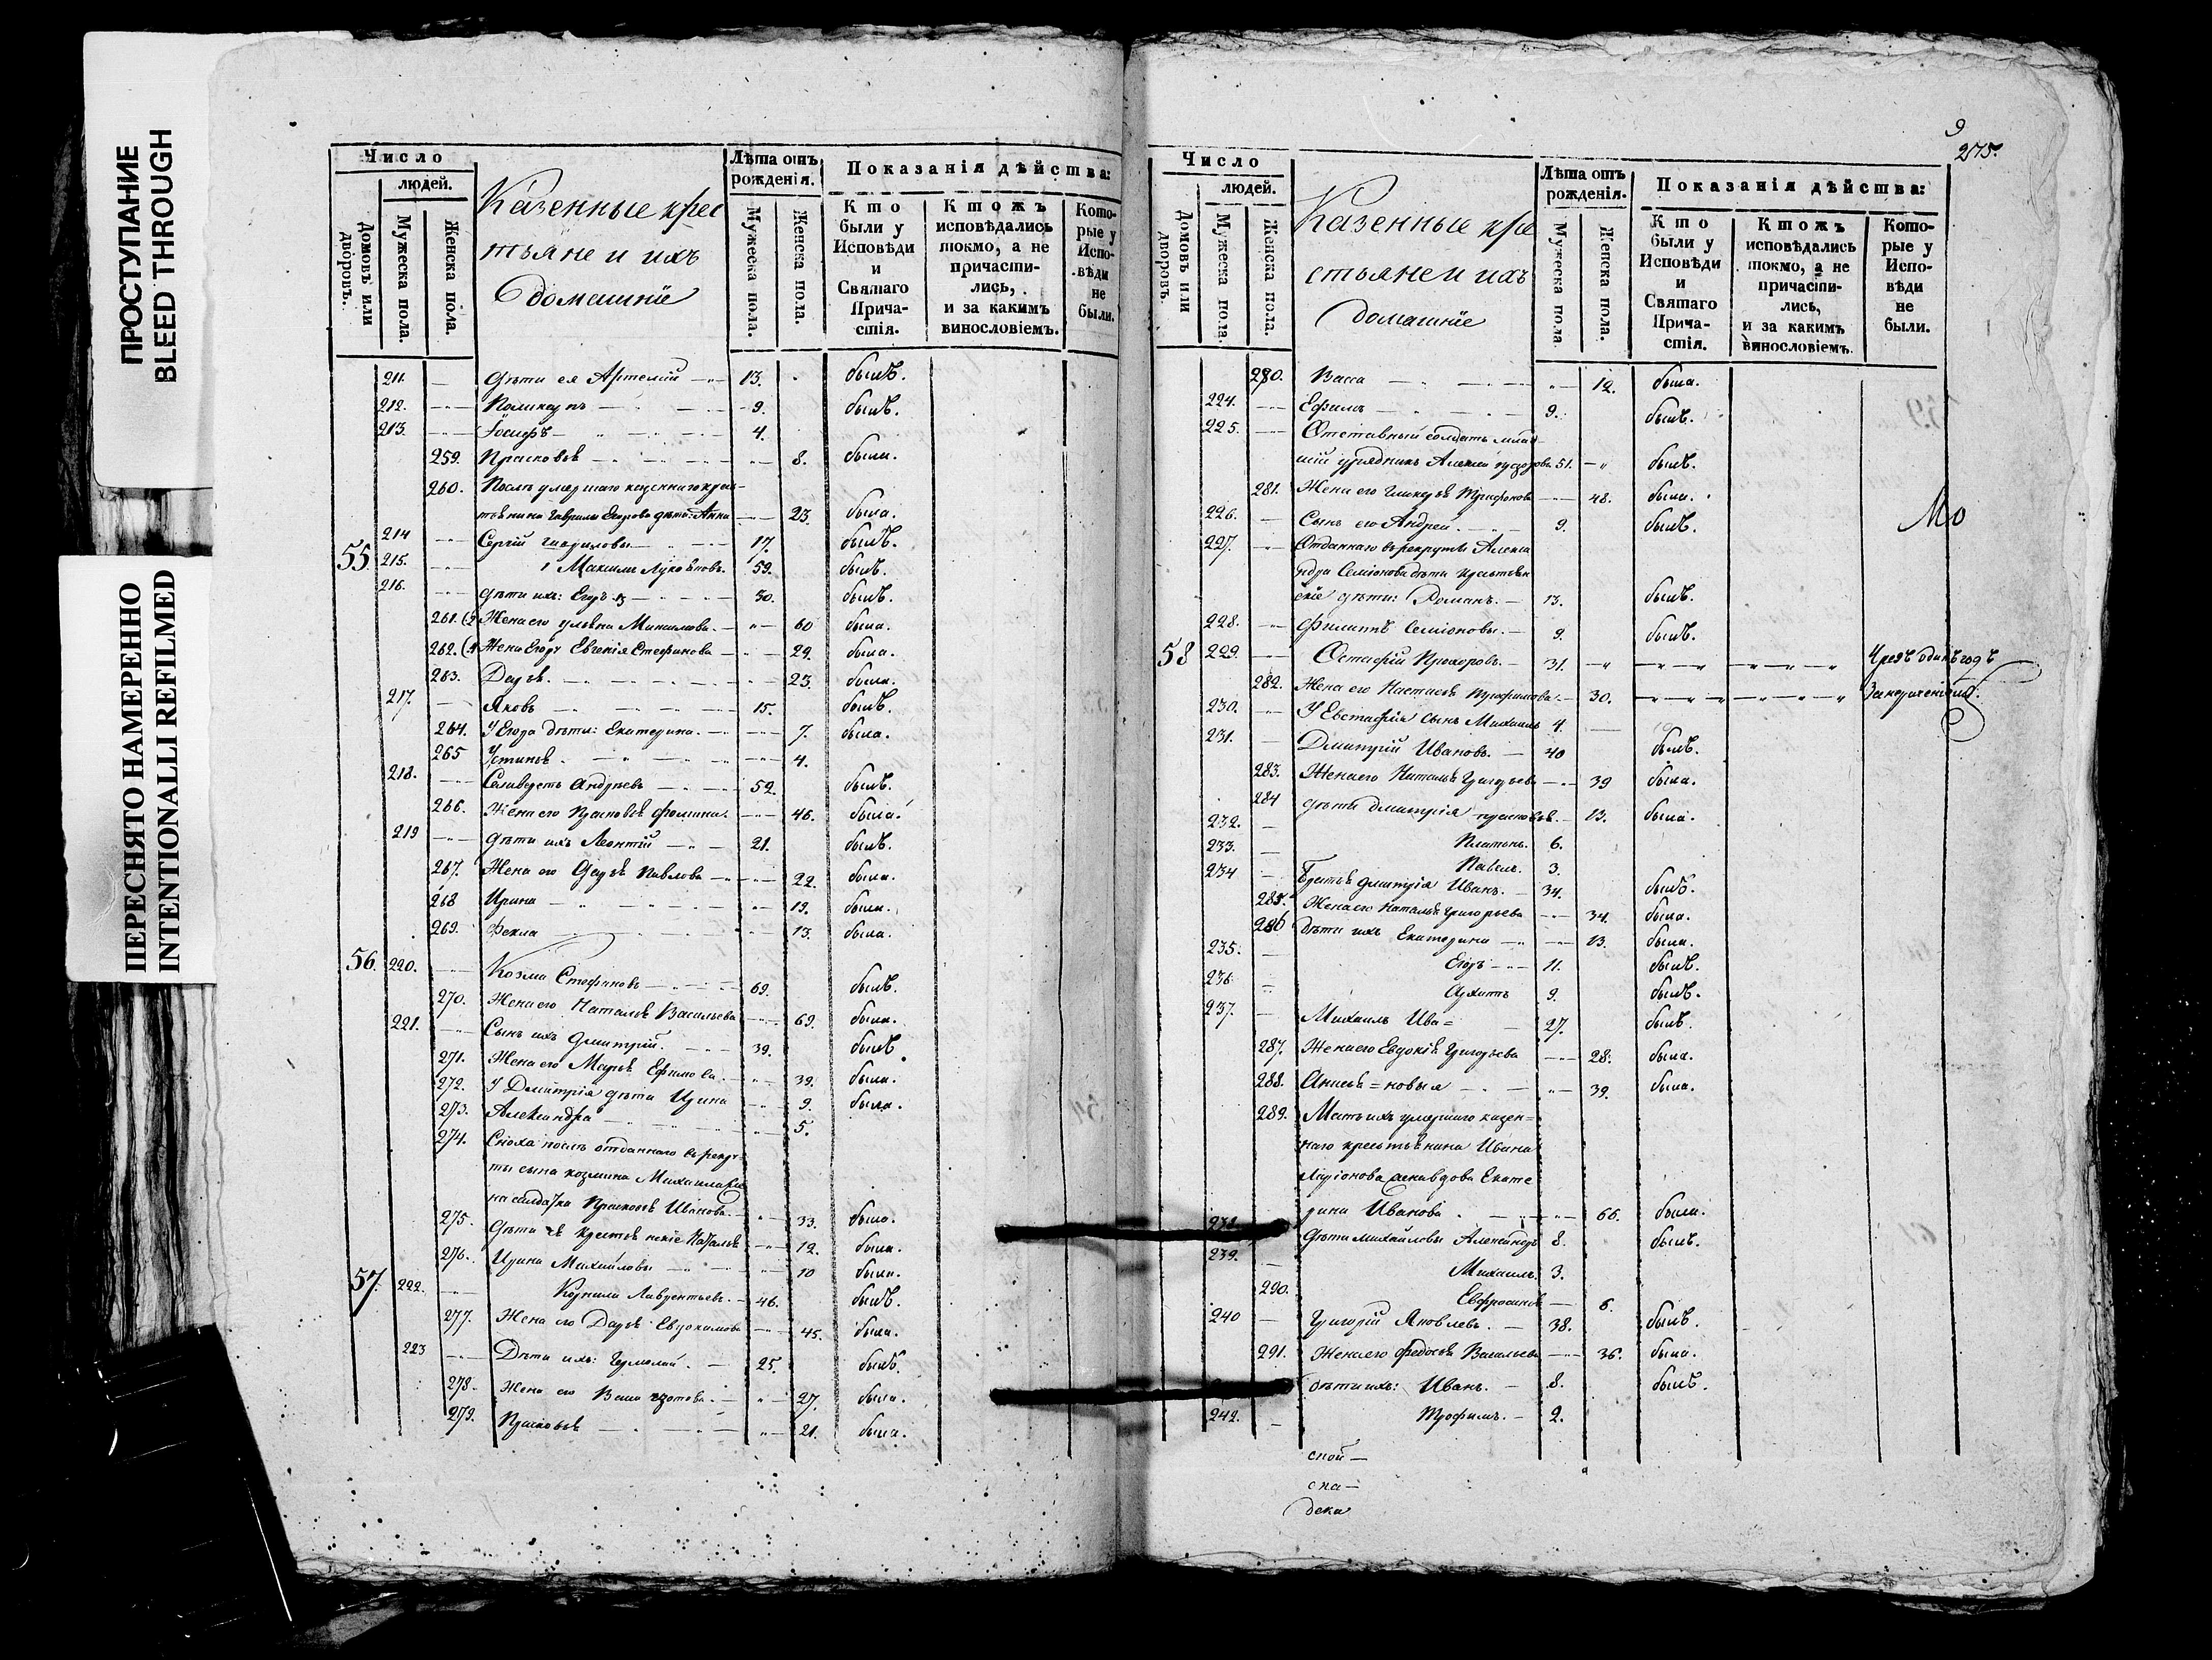 ПРОСТУПАНИЕ
BLEED THROUGH
ПЕРЕСНЯТО НАМЕРЕННО
INTENTIONALLI REFILMED
Число
людей.
Домовъ или дворовъ.
Мужеска пола.
Женска пола.
Казенные крес
тьяне и ихъ
домашніе
Лѣта отъ рожденія.
Мужеска пола.
Женска пола.
Показанія дѣйства:
Кто были у Исповѣди и Святаго Прича-стія.
Ктожъ исповѣдались токмо, а не причасти-лись, и за какимъ винословіемъ.
Кото-рые у Испо-вѣди не были.
211. — дѣти ея Артемій 13. былъ.
212. Поликарпъ 9. былъ.
213. Іосифъ 4.
259. Прасковья 8. была.
260. Послѣ умершаго казеннаго крес-
тьянина Гаврилы Егорова дѣти: Анна 23. была.
214 Сергій Гавриловы 17. былъ.
55. 215. Максимъ Лукьяновъ. 59. былъ.
216. дѣти ихъ: Егоръ 30. былъ.
261. Жена его Ульяна Максимова. 60 была.
262. Жена Егора Евгенія Стефанова 29. была.
263. Дарья. 23. была.
217. Яковъ 15. былъ.
264. У Егора дѣти: Екатерина. 7. была.
265 Устинья. 4.
218. Селиверстъ Андреевъ 52. былъ.
266. Жена его Прасковья Фомина. 46. была.
219 дѣти ихъ Леонтій 21. былъ.
267. Жена его Дарья Павлова 22. была.
268 Ирина 19. была.
269. Фекла 13. была.
56. 220. Козма Стефановъ 69. былъ.
270. Жена его Наталья Васильева 69. была.
221. Сынъ ихъ Дмитрій. 39. былъ.
271. Жена его Марья Ефимова. 39. была.
272. У Дмитрія дѣти Ирина 9. была.
273. Александра 5.
274. Сноха послѣ отданнаго въ рекру-
ты сына Козмина Михаила
на солдатка Прасковья Иванова. 33. была.
275. Дѣти ея крестьянскіе Наталья 12. была.
276. Ирина Михайловы 10 была.
57. 222. Корнила Лаврентьевъ. 46. былъ.
277. Жена его Дарья Евдокимова 45. была.
223 Дѣти ихъ: Ермолай. 25. былъ.
278. Жена его Васса Изотова. 27. была.
279. Прасковья 21. была.
9
275.
Число
людей.
Домовъ или дворовъ.
Мужеска пола.
Женска пола.
Казенные кре
стьяне и ихъ
домашніе
Лѣта отъ рожденія.
Мужеска пола.
Женска пола.
Показанія дѣйства:
Кто были у Исповѣди и Святаго Прича-стія.
Ктожъ исповѣдались токмо, а не причасти-лись, и за какимъ винословіемъ.
Кото-рые у Испо-вѣди не были.
280. Васса 12. была.
224. Ефимъ 9. былъ.
225. Отставный солдатъ млад-
шій урядникъ Алексей 51. былъ.
281. Жена его Гликерья Трифонова 48. была.
226. Сынъ его Андрей. 9. былъ.
Мо
227. Отданнаго въ рекруты Алекса
ндра Семіонова дѣти крестьян
скіе дѣти: Романъ. 13. былъ.
228. Филиппъ Семіоновы. 9. былъ.
58 229. Остафій Прохоровъ. 31. Чрезъ одинъ годъ
282. Жена его Настасья Трофимова. 30. За нераченіемъ.
230. У Евстафія сынъ Михаилъ 4.
231. Дмитрій Ивановъ. 40 былъ.
283. Жена его Наталья Григорьева 39 была.
284 дѣти Дмитрія Прасковья. 13. была.
232. Платонъ. 6.
233. Павелъ. 3.
234 Братья Дмитрія Иванъ. 34. былъ.
285. Жена его Наталья Григорьева 34. была.
286 Дѣти ихъ Екатерина 13. была.
235. Егоръ 11. былъ.
236. Архиппъ 9. былъ.
237. Михаилъ Ива= 27. былъ.
287. Жена его Евдокія Григорьева 28. была.
288. Анисья =новыя 39. была.
289. Мать ихъ умершаго казен=
наго крестьянина Ивана
Ларіонова жена вдова Екате
рина Иванова. 66. была.
Дѣти Михайловы Александръ 8. былъ.
239. Михаилъ. 3.
290. Евфросинья 6.
240 Григорій Яковлевъ. 38. былъ.
291. Жена его Федосья Васильева 36. была.
дѣти ихъ: Иванъ. 8. былъ.
242. Трофимъ. 2.
ской—
ска—